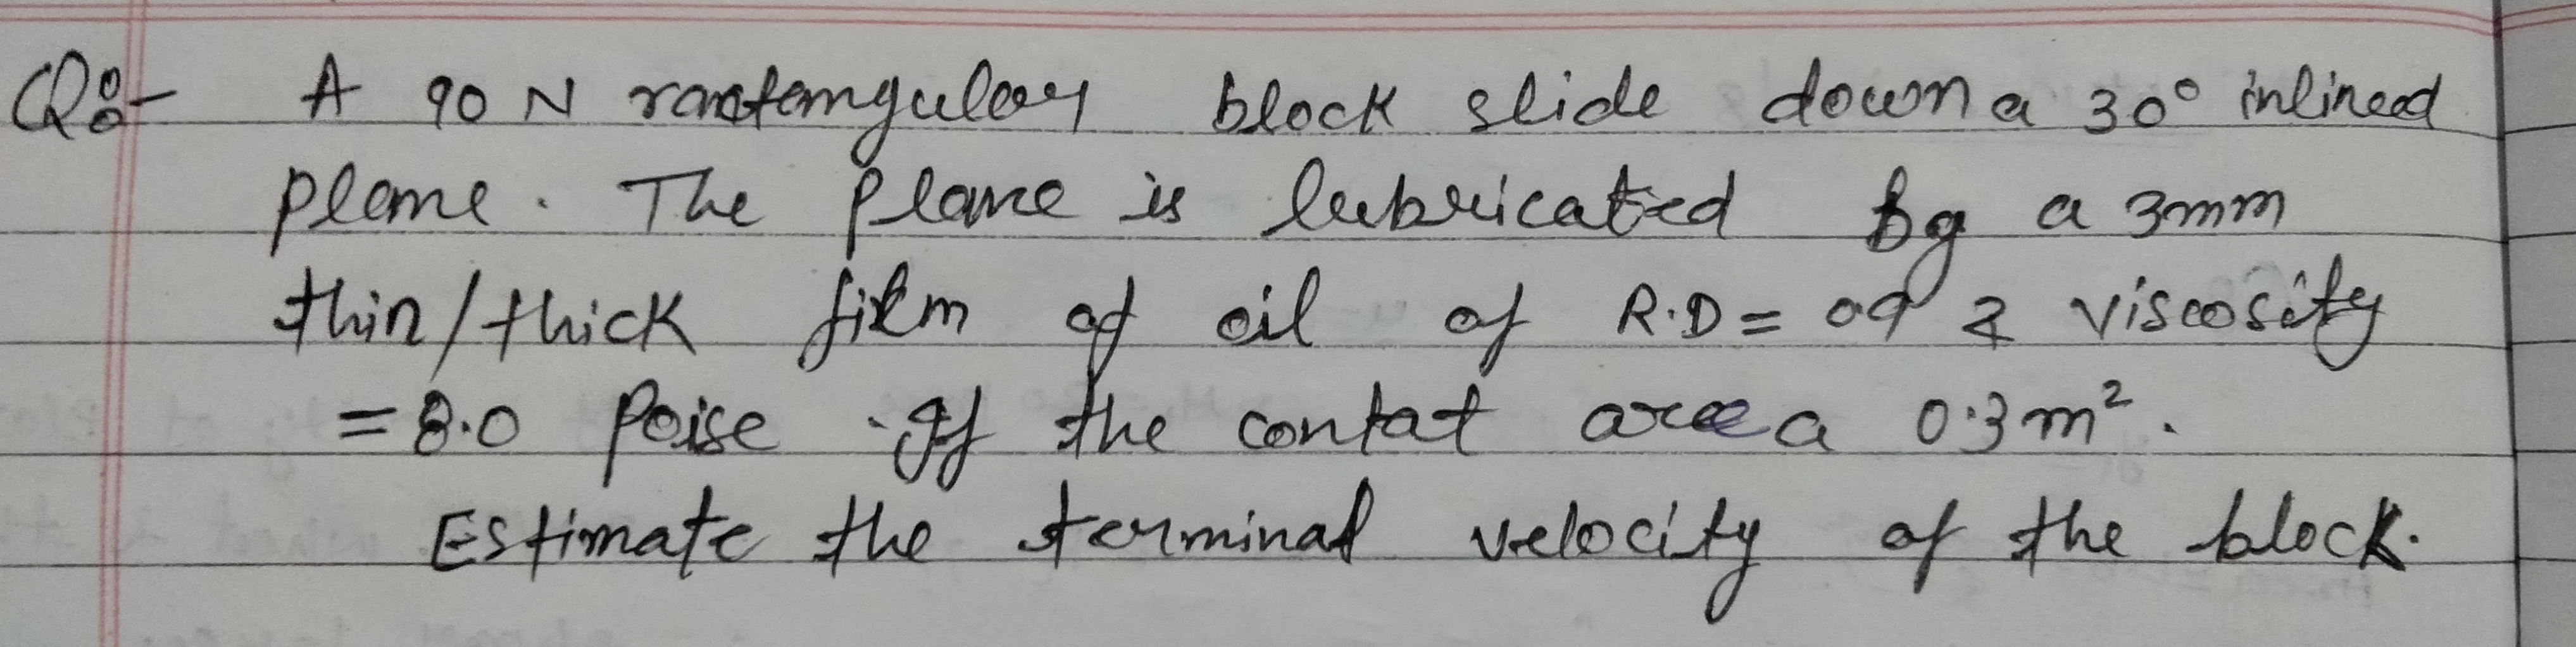 Q:- A 90 N ractangular block slide down a 30° inlined
plane. The plane is lubricated by a 3mm
thin/thick film of oil of R.D = 0.9 & viscosity
= 8.0 Poise. If the contat area 0.3 m².
Estimate the terminal velocity of the block.